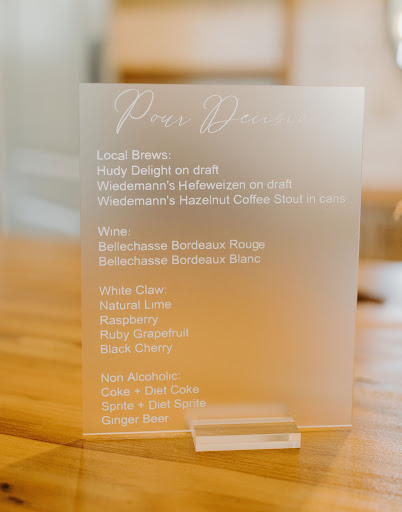 Pour Decisions
Local Brews:
Hudy Delight on draft
Wiedemann's Hefeweizen on draft
Wiedemann's Hazelnut Coffee Stout in cans
Wine:
Bellechasse Bordeaux Rouge
Bellechasse Bordeaux Blanc
White Claw:
Natural Lime
Raspberry
Ruby Grapefruit
Black Cherry
Non Alcoholic:
Coke + Diet Coke
Sprite + Diet Sprite
Ginger Beer